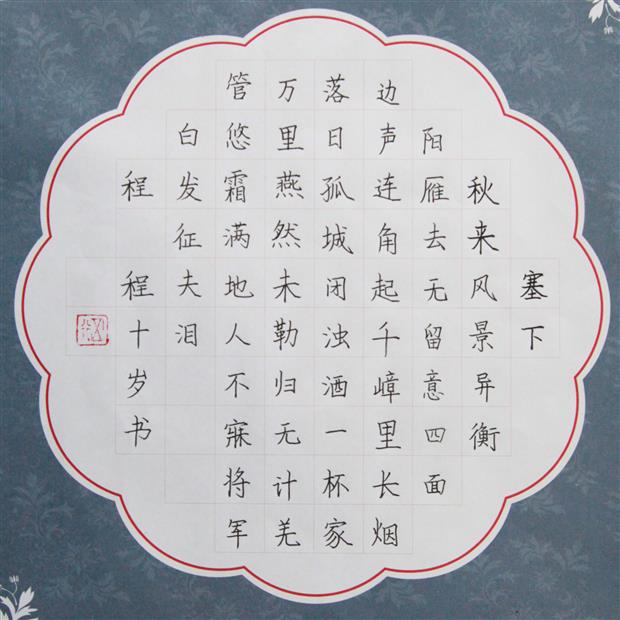 塞下
秋来风景异衡
阳雁去无留意四面
边声连角起千嶂里长烟
落日孤城闭浊酒一杯家
万里燕然未勒归无计羌
管悠霜满地人不寐将军
白发征夫泪
程 程十岁书